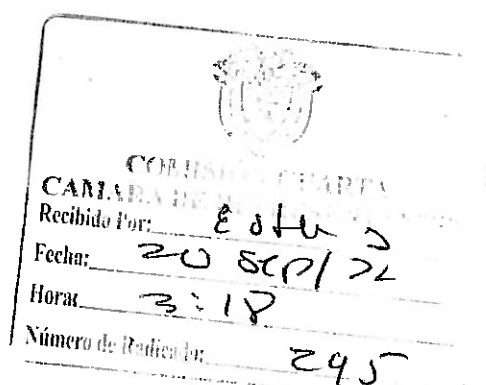 COMISIÓN CUARTA
CAMARA DE
Recibido Por: Esth
Fecha: 20 sep/22
Hora: 3:18
Número de Radicado: 295